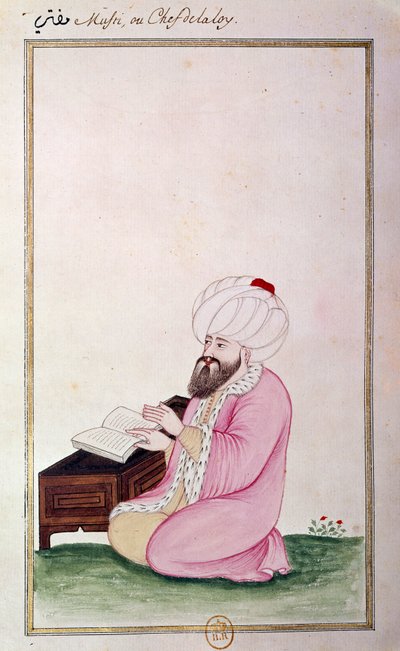 مفتي Mufti, ou Chef de la loy.